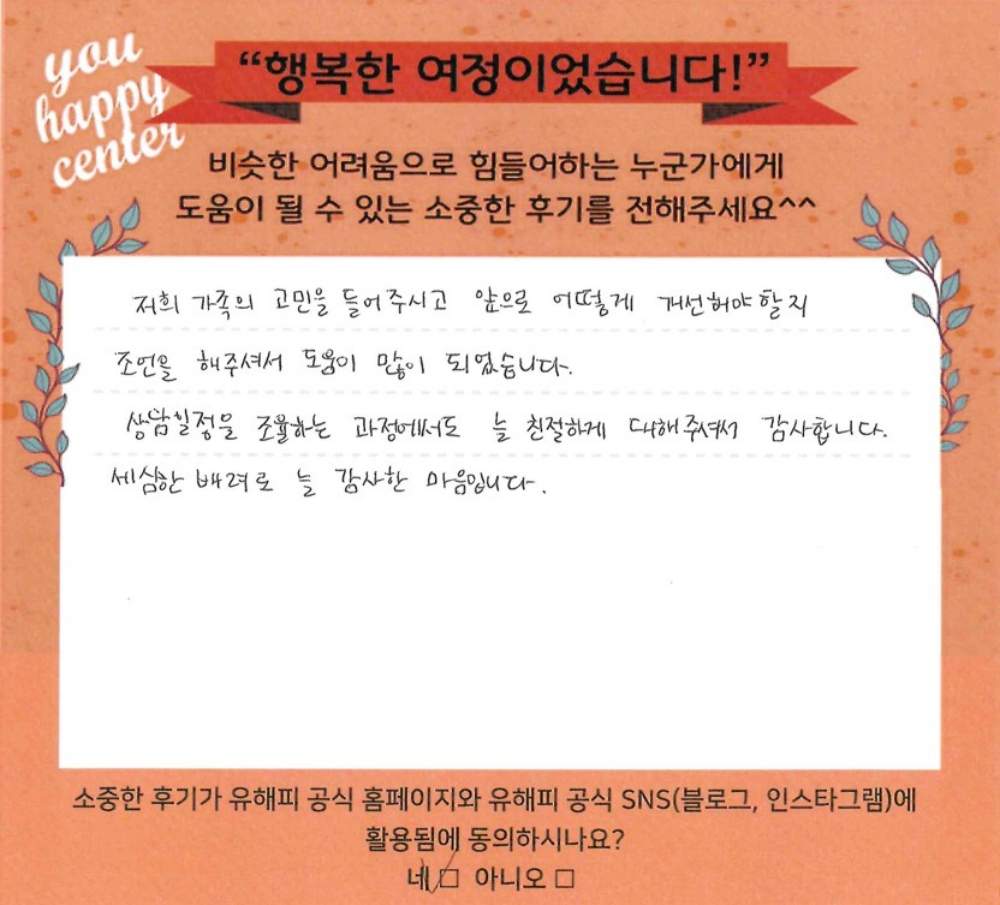 you
happy
center
“행복한 여정이었습니다!”
비슷한 어려움으로 힘들어하는 누군가에게
도움이 될 수 있는 소중한 후기를 전해주세요^^
저희 가족의 고민을 들어주시고 앞으로 어떻게 개선해야할지
조언을 해주셔서 도움이 많이 되었습니다.
상담일정을 조율하는 과정에서도 늘 친절하게 대해주셔서 감사합니다.
세심한 배려로 늘 감사한 마음입니다.
소중한 후기가 유해피 공식 홈페이지와 유해피 공식 SNS(블로그, 인스타그램)에
활용됨에 동의하시나요?
네 ☐ 아니오 ☐